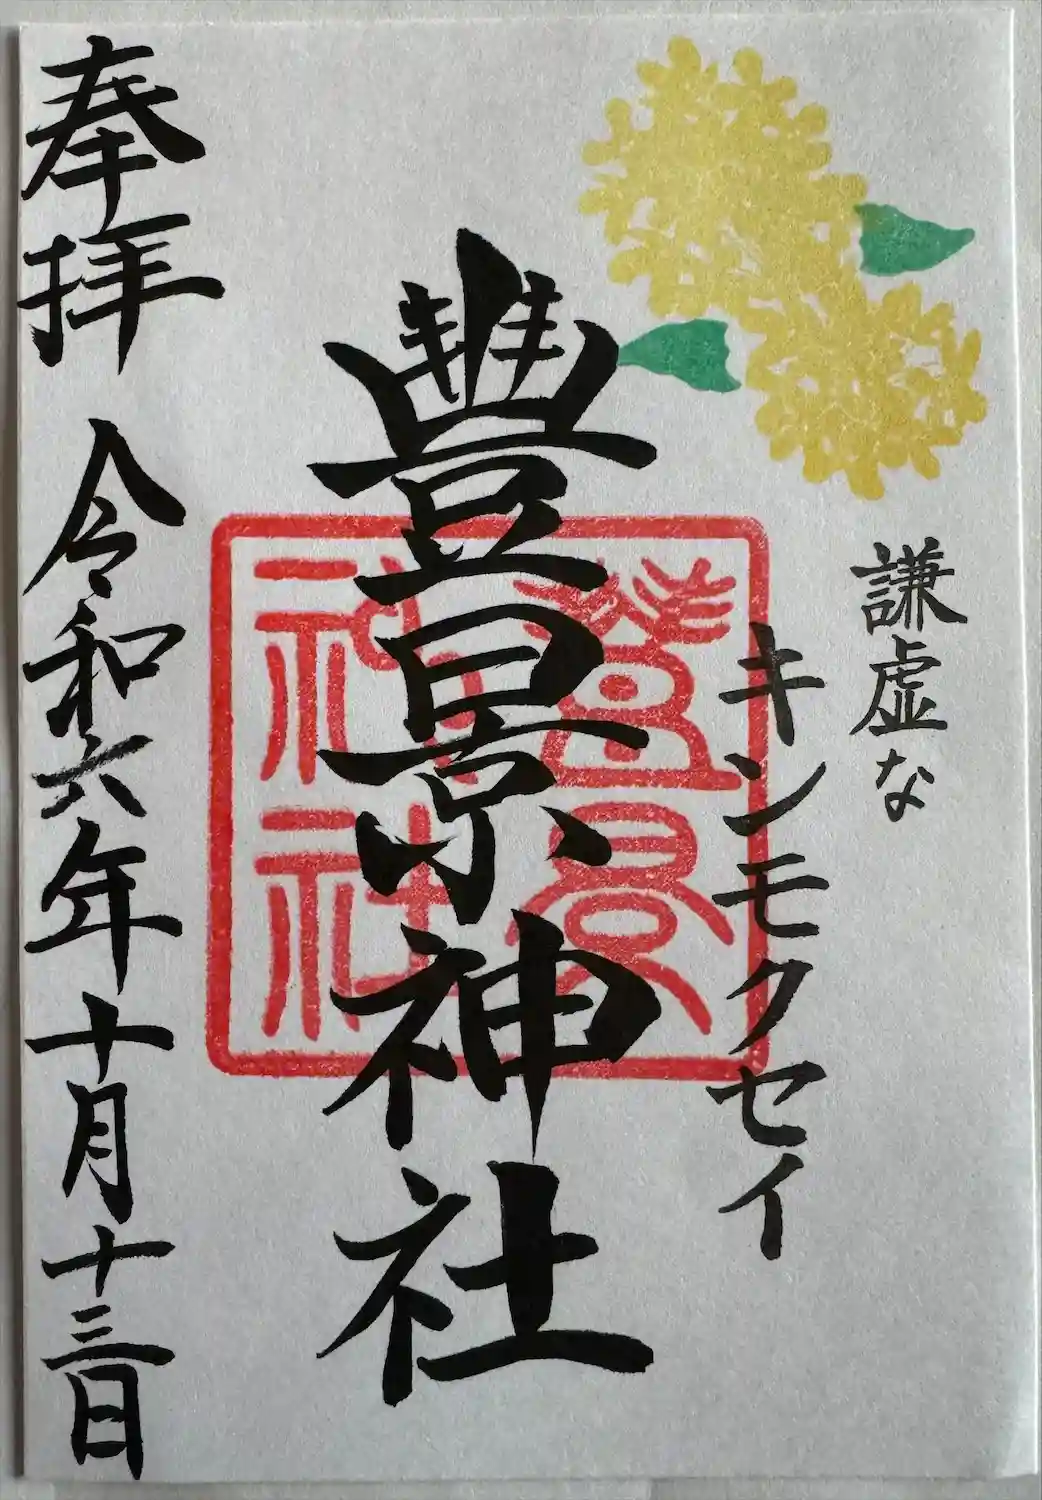 謙虚な
キンモクセイ
豊景神社
豊景神社
奉拝 令和六年十月十三日